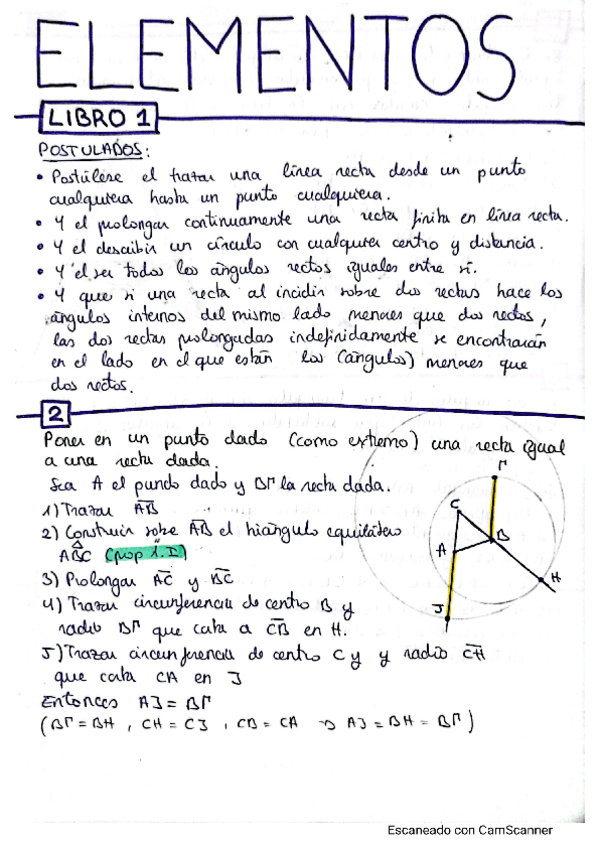 ELEMENTOS
LIBRO 1
POSTULADOS:
• Postúlese el trazar una línea recta desde un punto
cualquiera hasta un punto cualquiera.
• Y el prolongar continuamente una recta finita en línea recta.
• Y el describir un círculo con cualquier centro y distancia.
• Y el ser todos los ángulos rectos iguales entre sí.
• Y que si una recta al incidir sobre dos rectas hace los
ángulos internos del mismo lado menores que dos rectos,
las dos rectas prolongadas indefinidamente se encontrarán
en el lado en el que están los (ángulos) menores que
dos rectos.
2
Poner en un punto dado (como extremo) una recta igual
a una recta dada.
Sea A el punto dado y BΓ la recta dada.
1) Trazar A̅B̅
2) Construir sobre A̅B̅ el triángulo equilátero
ABC (prop 1.I)
3) Prolongar A̅C̅ y B̅C̅
4) Trazar circunferencia de centro B y
radio BΓ que corta a C̅B̅ en H.
5) Trazar circunferencia de centro C y y radio C̅H̅
que corta CA en J
Entonces AJ = BΓ
(BΓ = BH , CH = CJ , CB = CA → AJ = BH = BΓ)
Γ
C
B
A
H
J
Escaneado con CamScanner